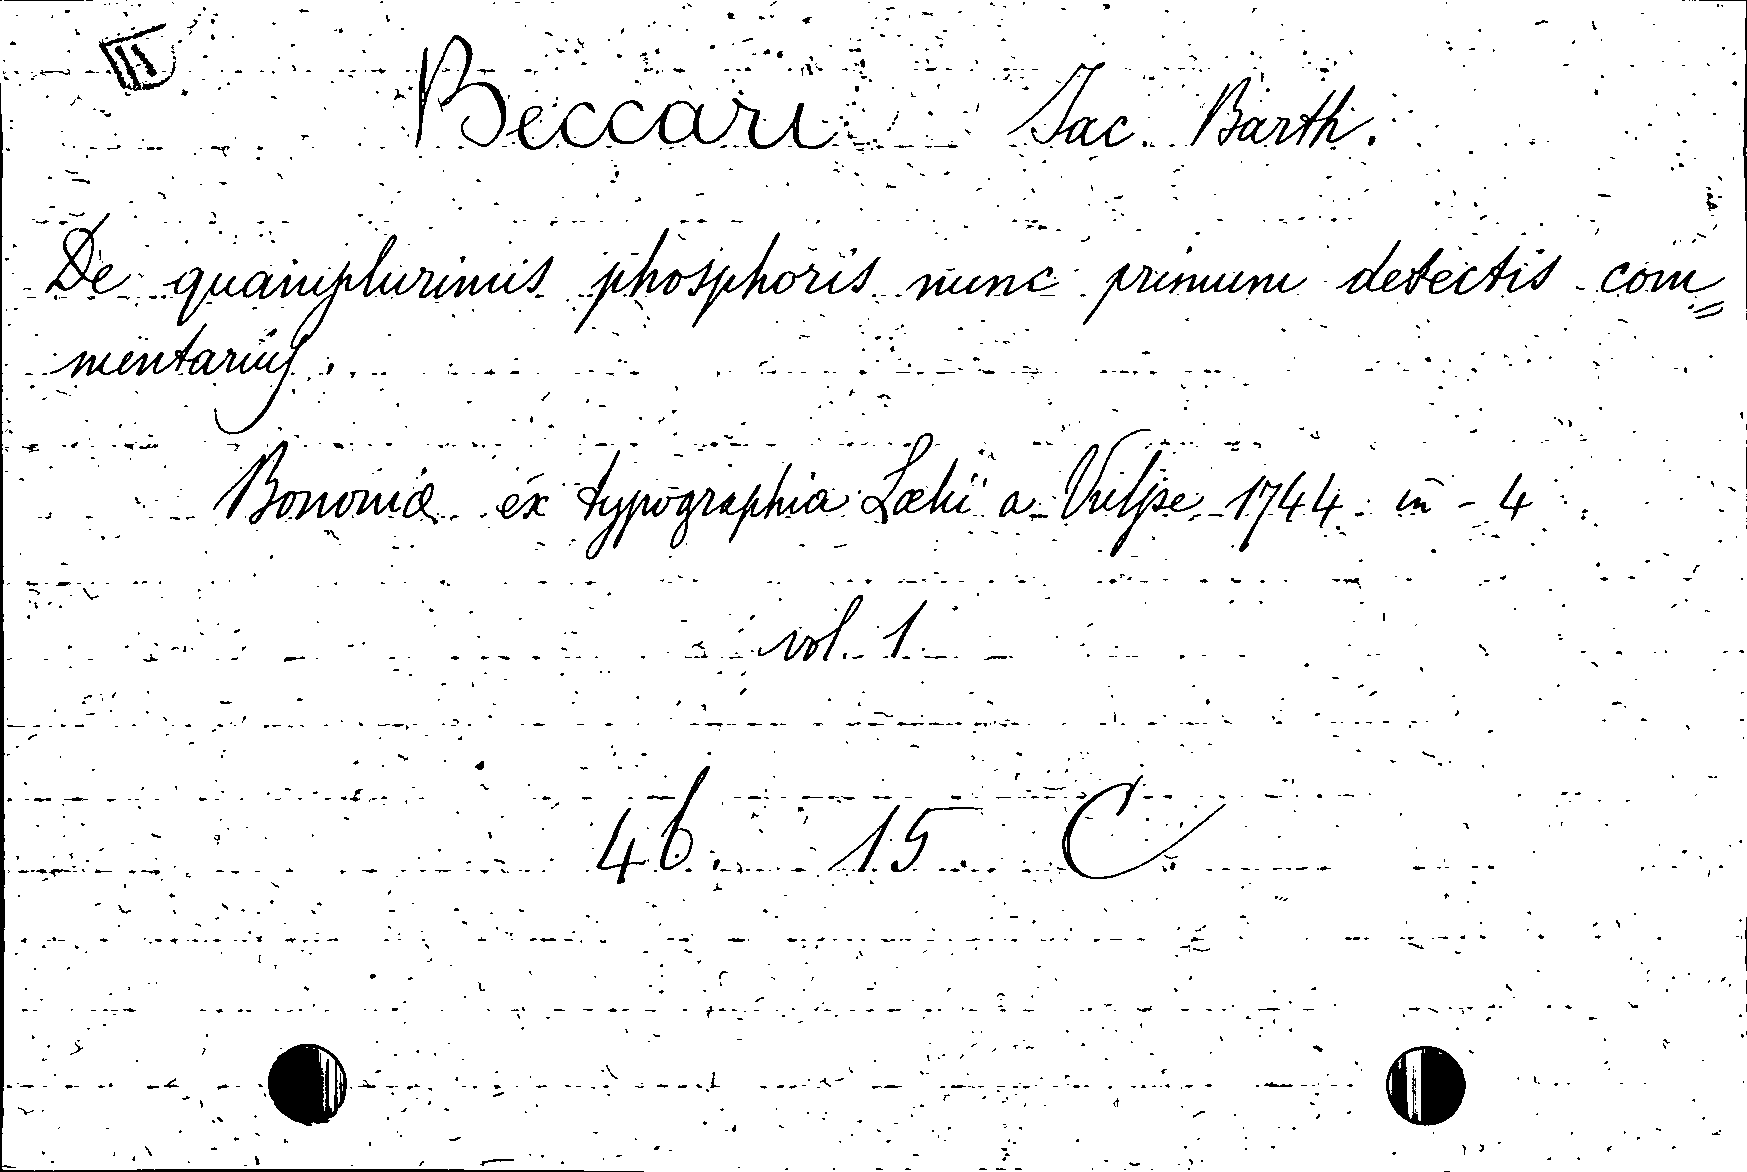 Beccari Jac. Barth.
De quamplurimis phosphoris nunc primum detectis com=
mentarius.
Bononiæ ex typographia Lælii a Vulpe 1744 in-4
vol. 1
46. 15 C